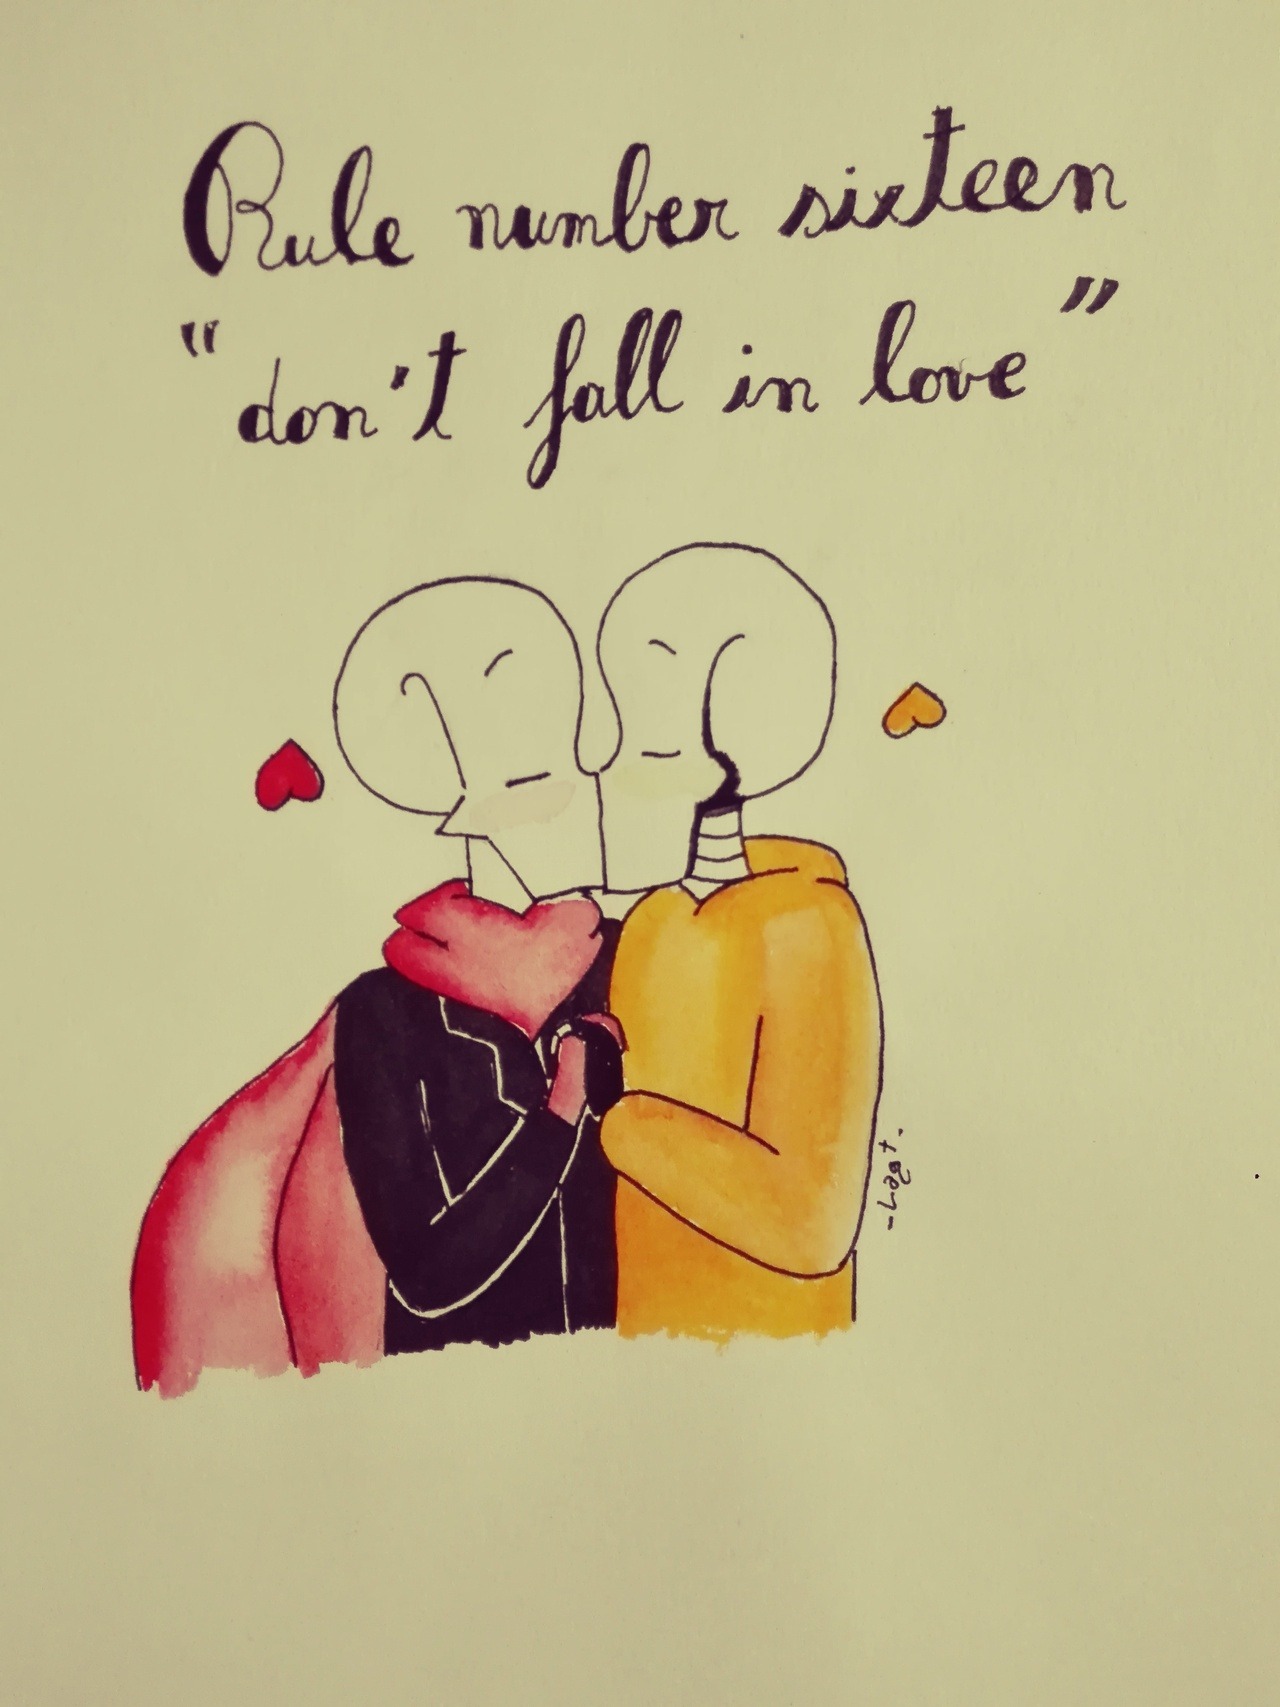 Rule number sixteen
"don't fall in love"
-Lage+.